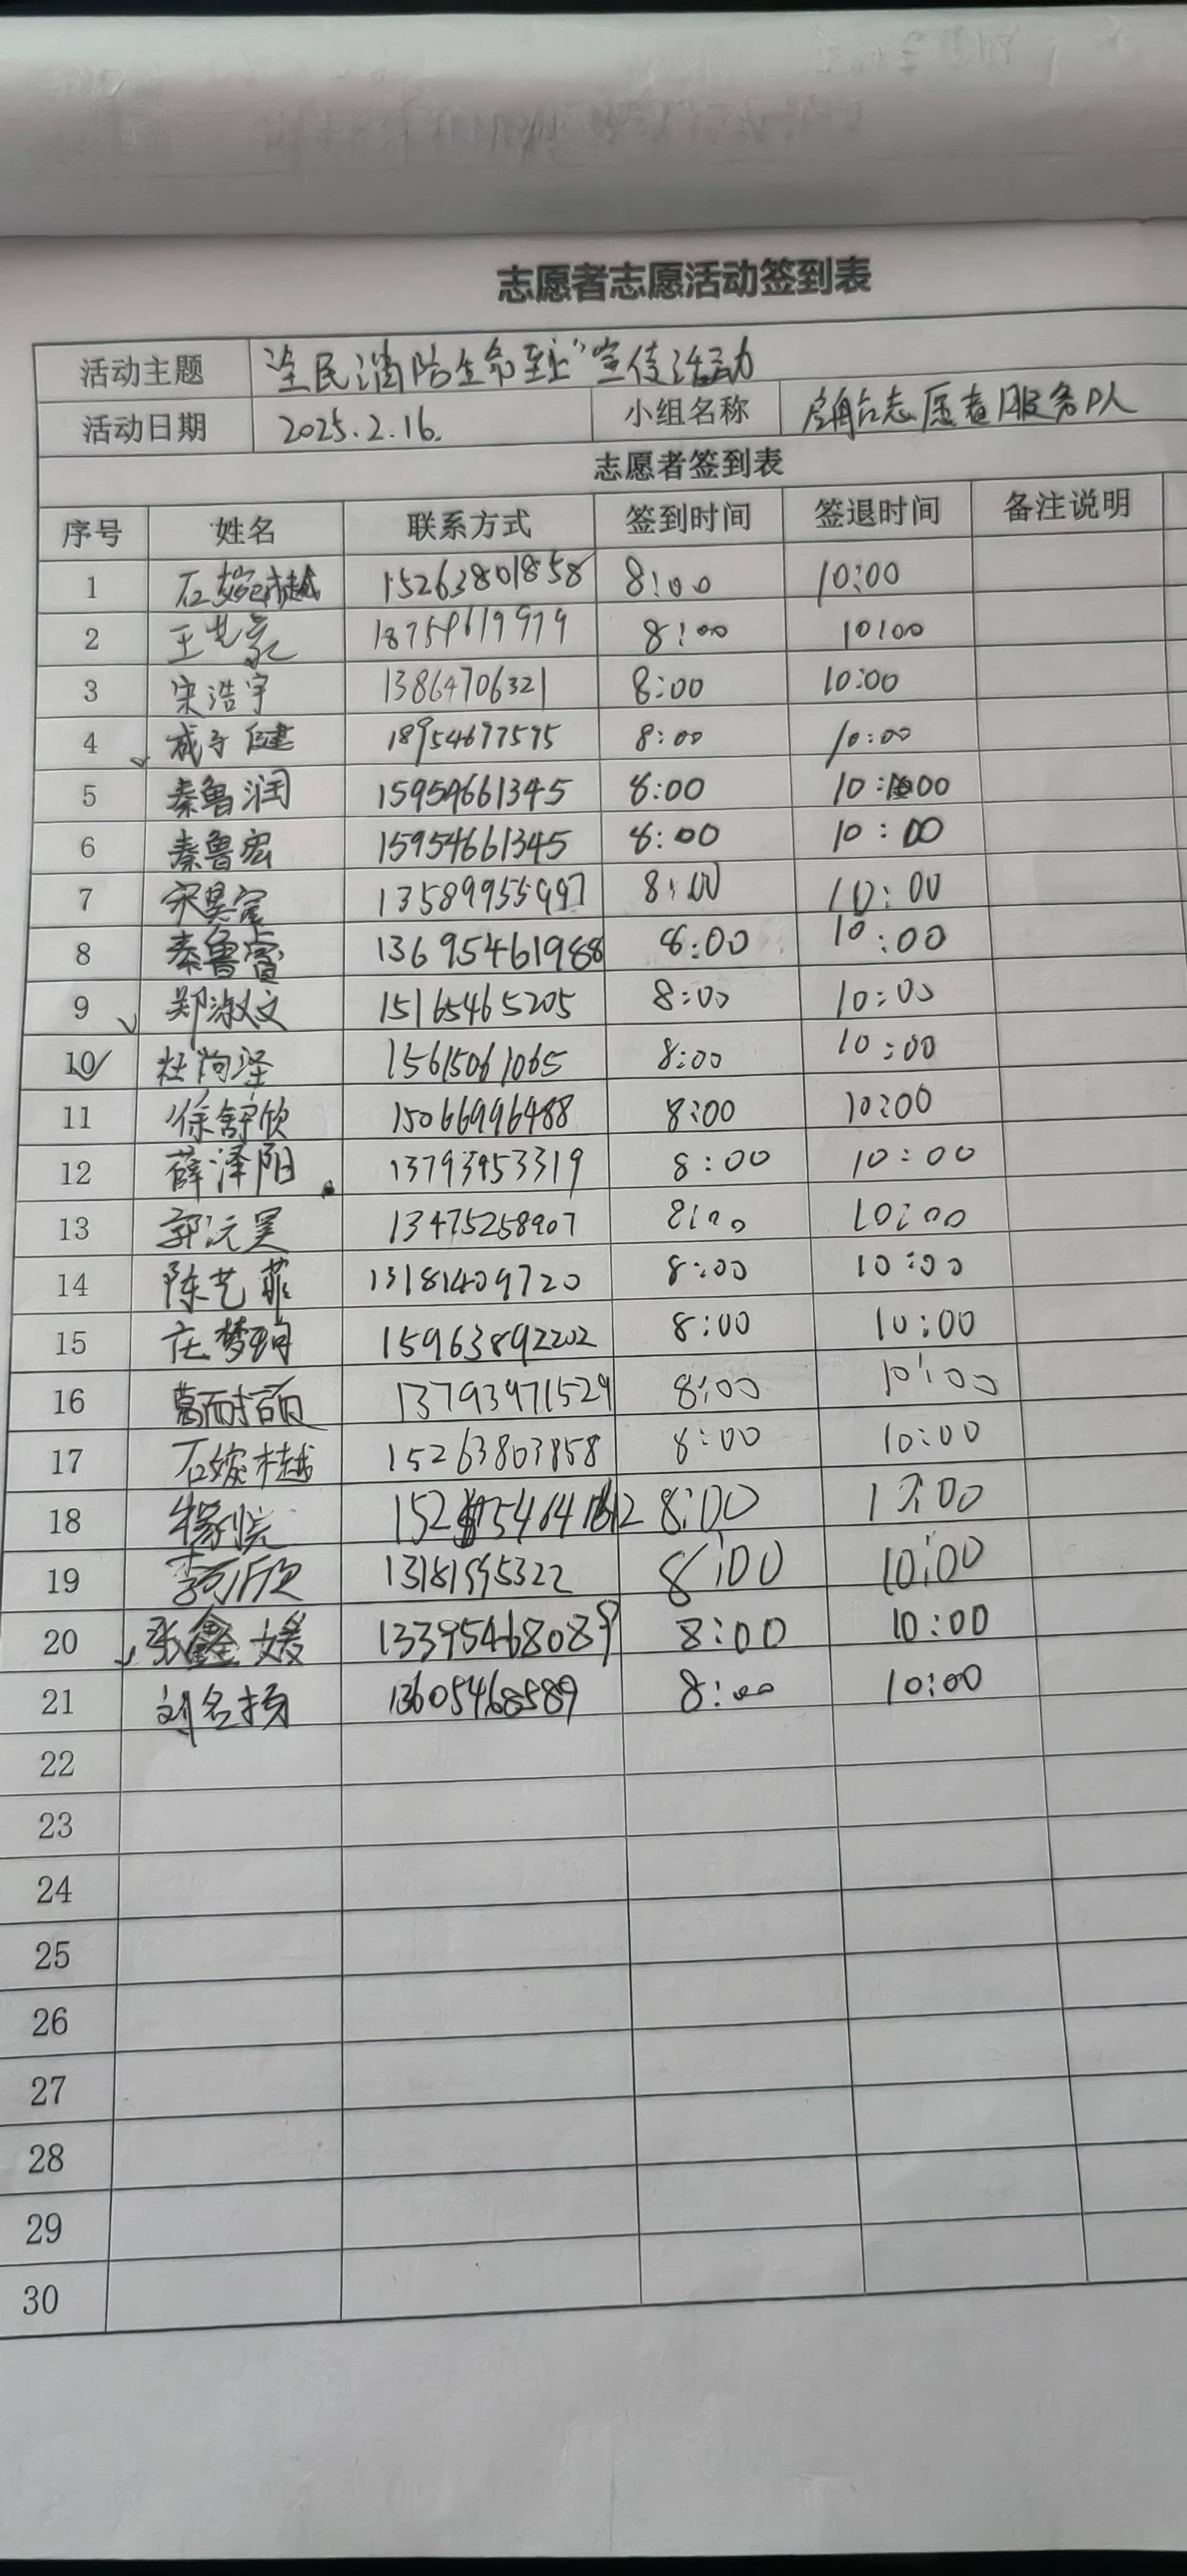 志愿者志愿活动签到表
活动主题 全民消防生命至上"宣传活动
活动日期 2025.2.16. 小组名称 志愿者服务队
志愿者签到表
序号 姓名 联系方式 签到时间 签退时间 备注说明
1 15263801858 8:00 10:00
2 王艺豪 18759619979 8:00 10:00
3 宋浩宇 13864706321 8:00 10:00
4 咸子健 18954677575 8:00 10:00
5 秦鲁润 15954661345 8:00 10:00
6 秦鲁宏 15954661345 8:00 10:00
7 宋昊宸 13589955997 8:00 10:00
8 秦鲁 13695461988 8:00 10:00
9 郑淑文 15165465205 8:00 10:00
10 杜尚泽 15615061065 8:00 10:00
11 徐舒欣 15066996488 8:00 10:00
12 薛泽阳 13793953319 8:00 10:00
13 郭沅昊 13475258907 8:00 10:00
14 陈艺菲 13181409720 8:00 10:00
15 庄梦 15963892202 8:00 10:00
16 葛耐 13793971529 8:00 10:00
17 15263803858 8:00 10:00
18 8:00 10:00
19 13181995322 8:00 10:00
20 张鑫媛 13395468089 8:00 10:00
21 刘名扬 13605468589 8:00 10:00
22
23
24
25
26
27
28
29
30